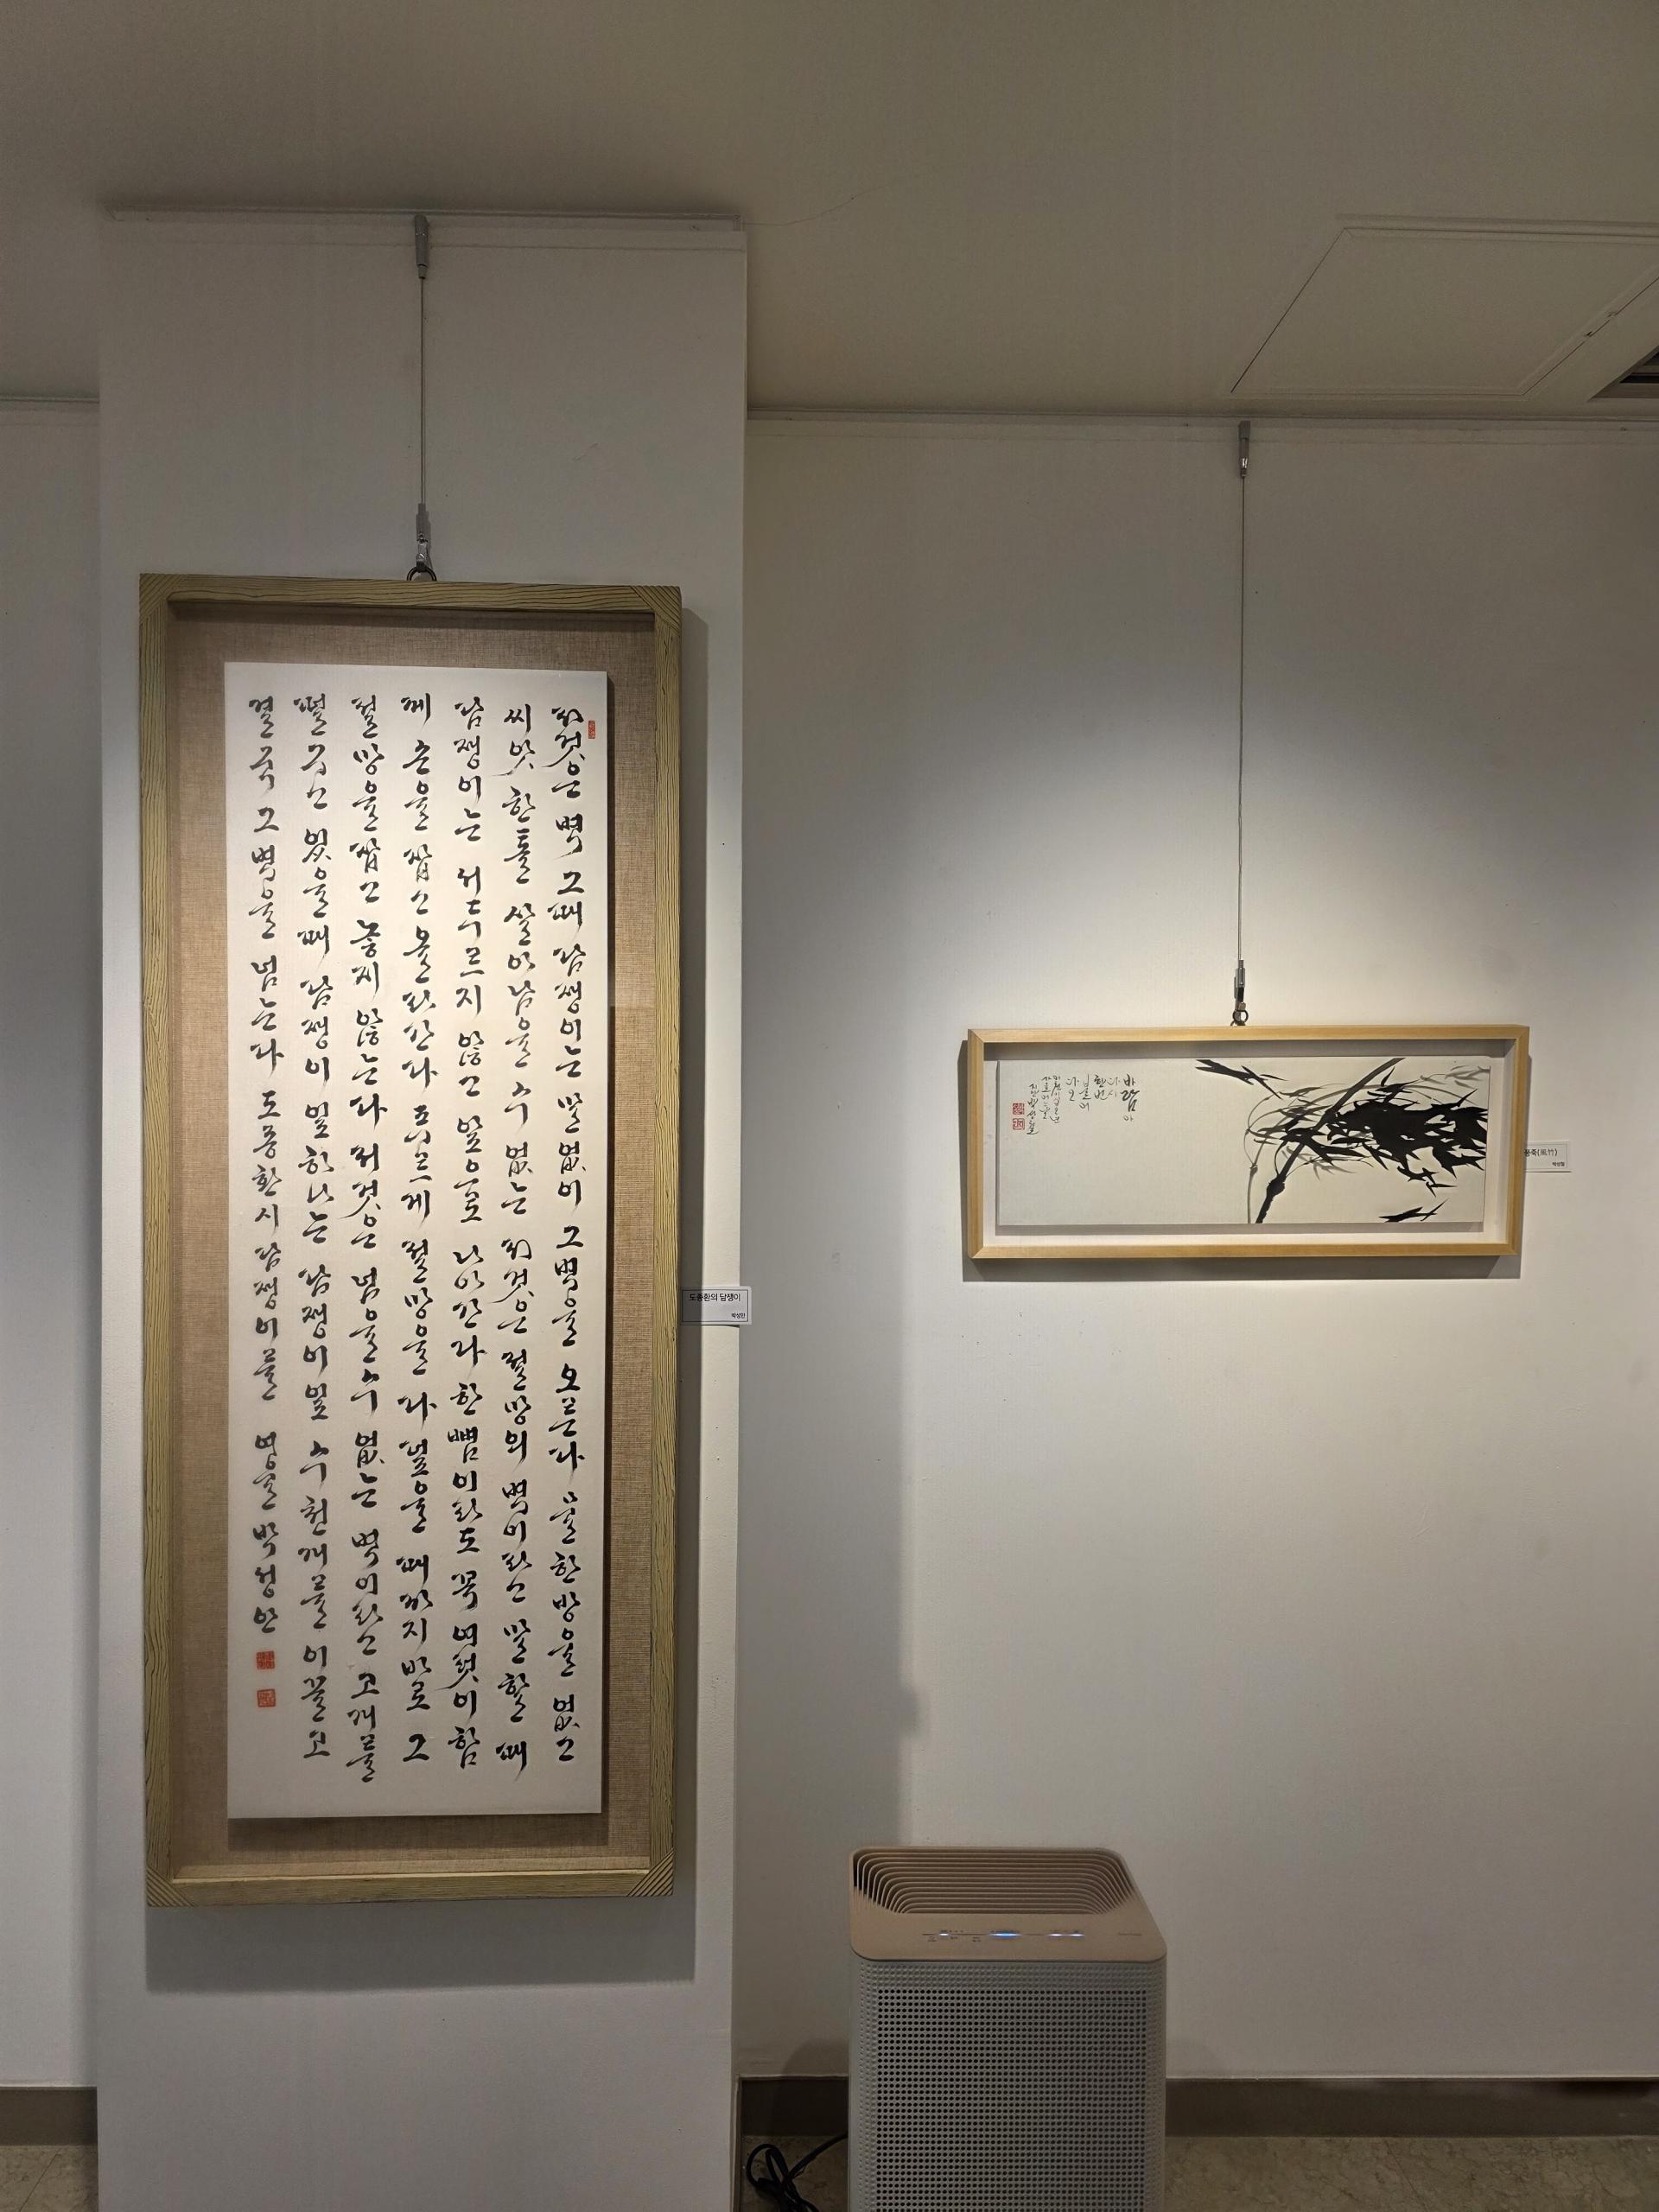 저것은 벽 그때 담쟁이는 말없이 그벽을 오른다 물한방울 없고
씨앗 한톨 살아남을 수 없는 저것은 절망의 벽이라고 말할 때
담쟁이는 서두르지 않고 앞으로 나아간다 한뼘이라도 꼭 여럿이 함
께 손을 잡고 올라간다 푸르게 절망을 다 덮을 때까지 바로 그
절망을 잡고 놓지 않는다 저것은 넘을 수 없는 벽이라고 고개를
떨구고 있을때 담쟁이 잎 하나는 담쟁이 잎 수천개를 이끌고
결국 그 벽을 넘는다 도종환 시 담쟁이를
도종환의 담쟁이
바람아
다시
한번
불어
다오
풍죽(風竹)